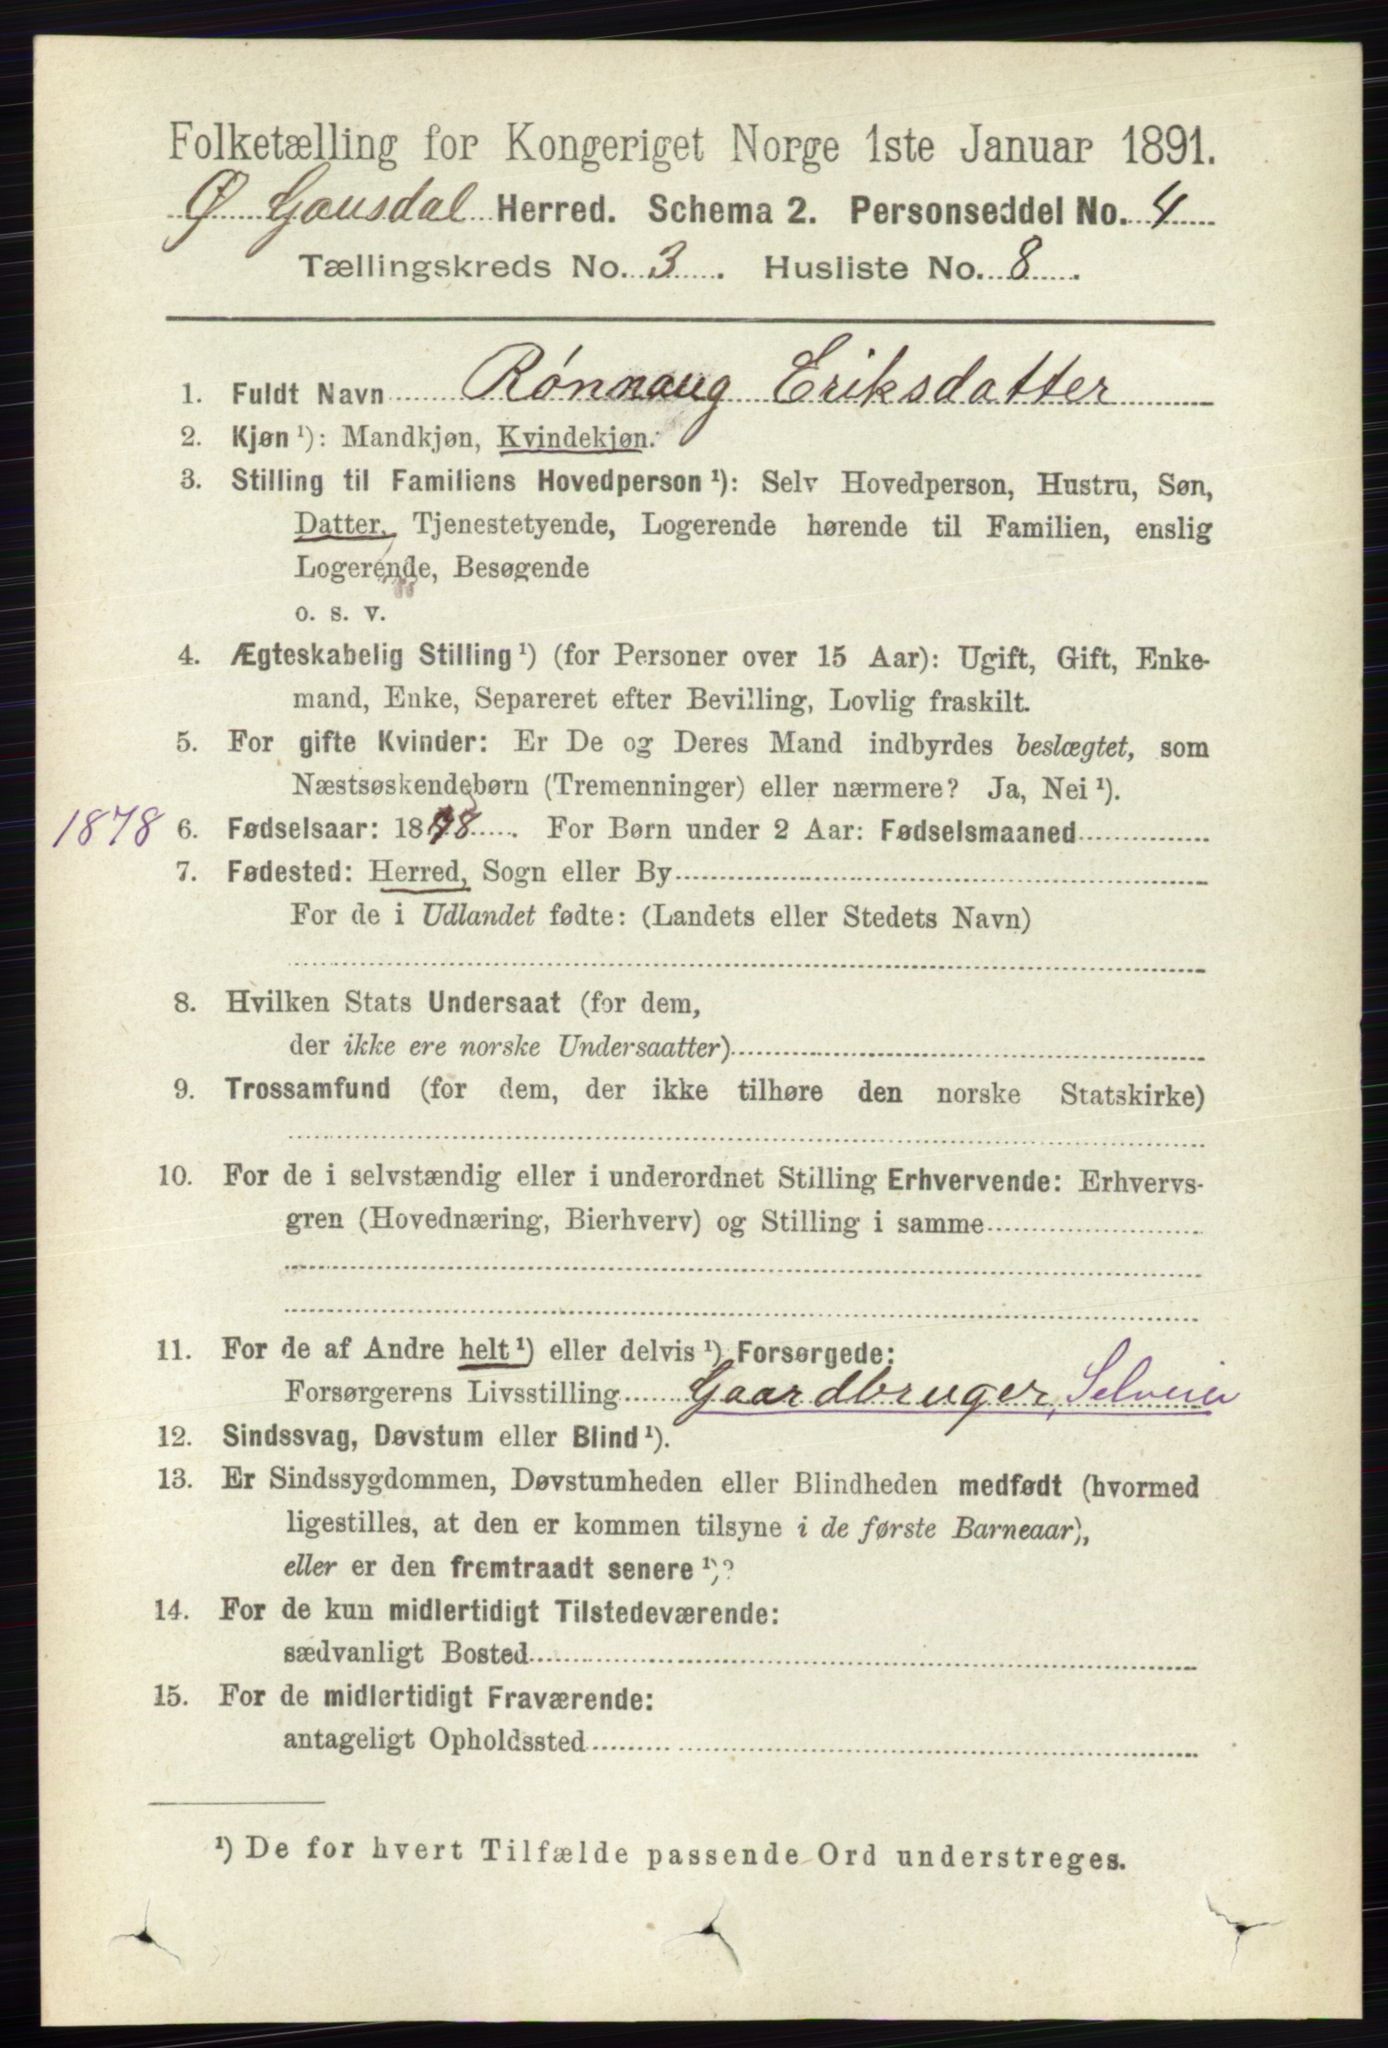 Folketælling for Kongeriget Norge 1ste Januar 1891.
Ø Gausdal Herred. Schema 2. Personseddel No. 4
Tællingskreds No. 3. Husliste No. 8.
1. Fuldt Navn Rønnaug Eriksdatter
2. Kjøn ¹): Mandkjøn, Kvindekjøn.
3. Stilling til Familiens Hovedperson ¹): Selv Hovedperson, Hustru, Søn,
Datter, Tjenestetyende, Logerende hørende til Familien, enslig
Logerende, Besøgende
o. s. v.
4. Ægteskabelig Stilling ¹) (for Personer over 15 Aar): Ugift, Gift, Enke-
mand, Enke, Separeret efter Bevilling, Lovlig fraskilt.
5. For gifte Kvinder: Er De og Deres Mand indbyrdes beslægtet, som
Næstsøskendebørn (Tremenninger) eller nærmere? Ja, Nei ¹).
1878 6. Fødselsaar: 1878. For Børn under 2 Aar: Fødselsmaaned
7. Fødested: Herred, Sogn eller By
For de i Udlandet fødte: (Landets eller Stedets Navn)
8. Hvilken Stats Undersaat (for dem,
der ikke ere norske Undersaatter)
9. Trossamfund (for dem, der ikke tilhøre den norske Statskirke)
10. For de i selvstændig eller i underordnet Stilling Erhvervende: Erhvervs-
gren (Hovednæring, Bierhverv) og Stilling i samme
11. For de af Andre helt ¹) eller delvis ¹) Forsørgede:
Forsørgerens Livsstilling Gaardbruger, Selveier
12. Sindssvag, Døvstum eller Blind ¹).
13. Er Sindssygdommen, Døvstumheden eller Blindheden medfødt (hvormed
ligestilles, at den er kommen tilsyne i de første Barneaar),
eller er den fremtraadt senere ¹)?
14. For de kun midlertidigt Tilstedeværende:
sædvanligt Bosted
15. For de midlertidigt Fraværende:
antageligt Opholdssted
¹) De for hvert Tilfælde passende Ord understreges.